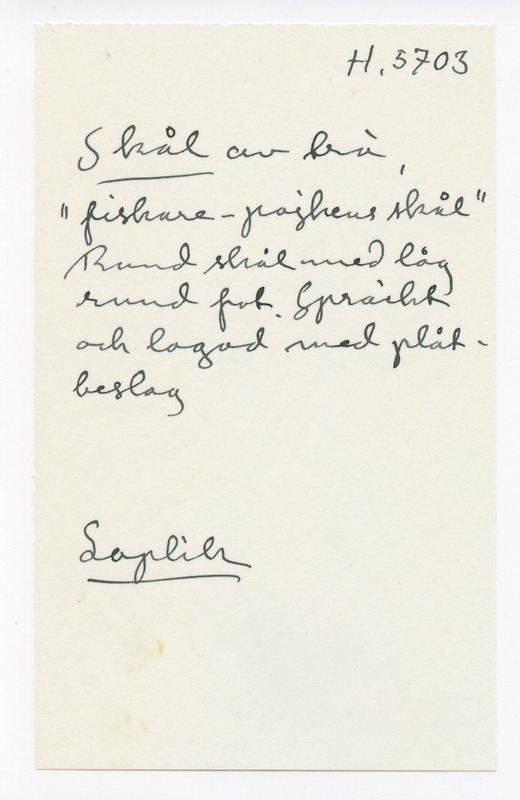 H. 5703
Skål av trä,
"fiskare-pojkens skål"
Rund skål med låg
rund fot. Spräckt
och lagad med plåt-
beslag